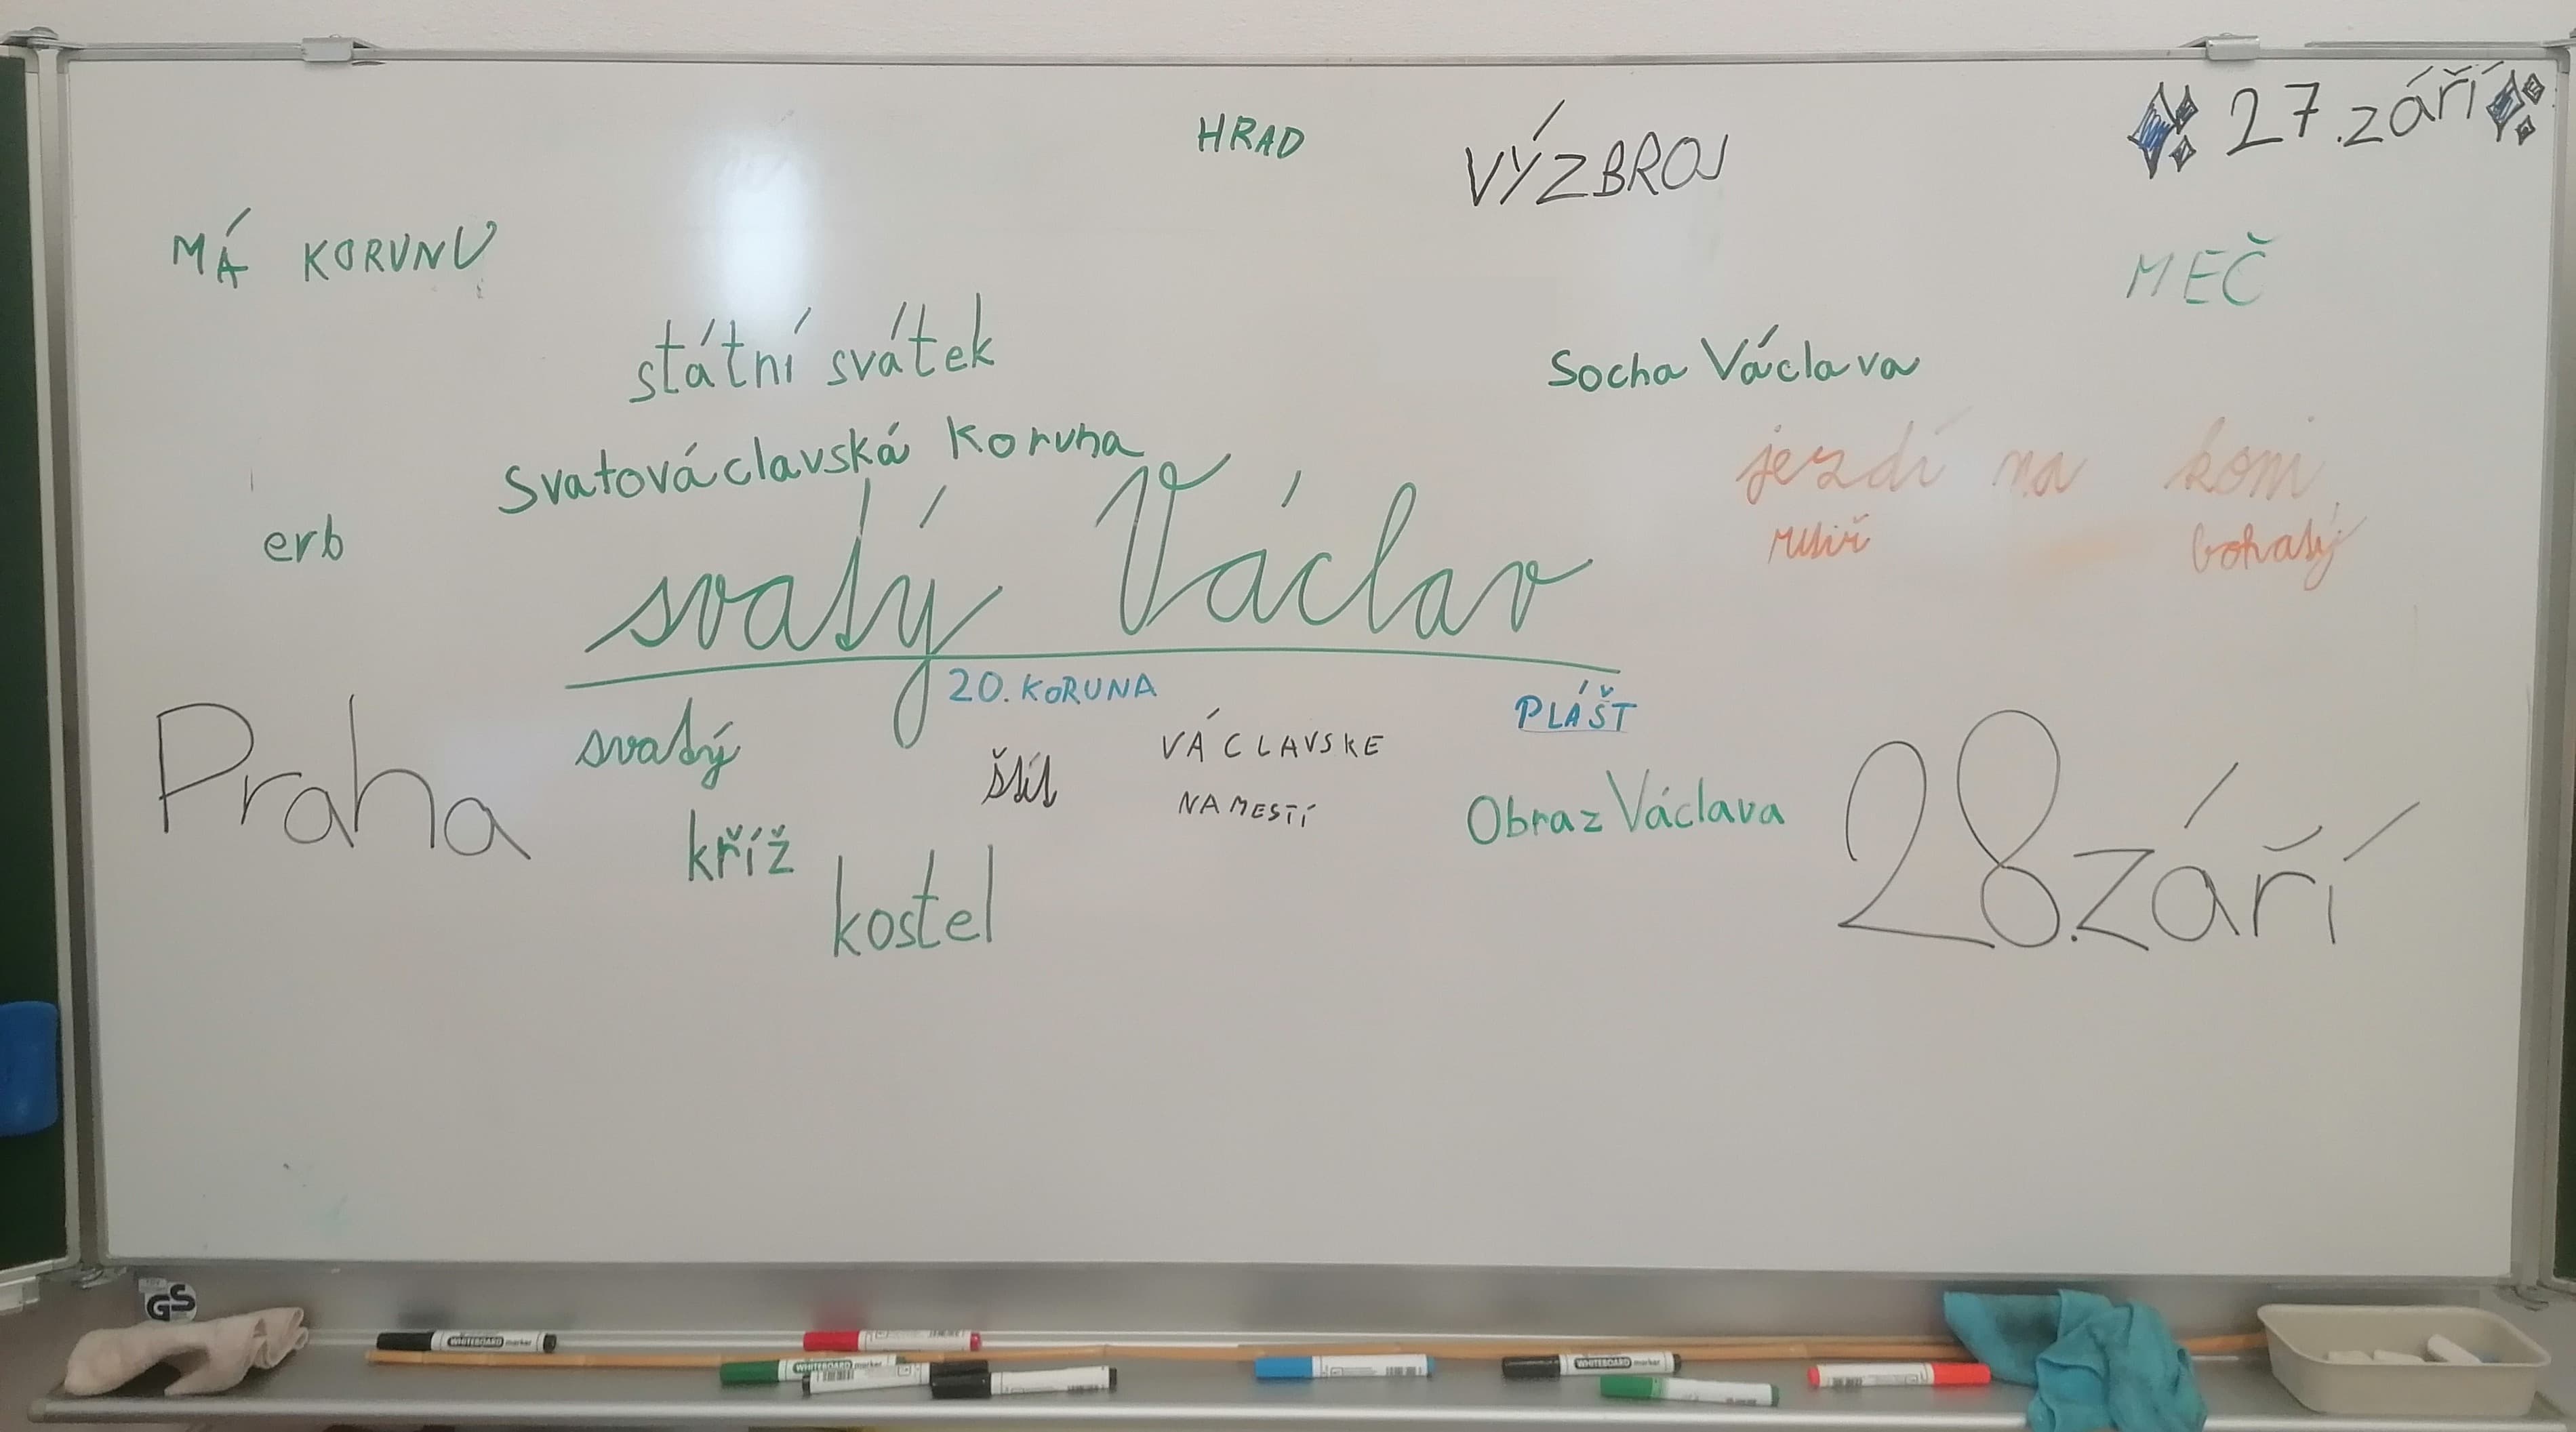 27. září
HRAD
VÝZBROJ
MÁ KORUNU
MEČ
státní svátek
Socha Václava
Svatováclavská Koruna
jezdí na koni
erb
bohatý
svatý Václav
20. KORUNA
PLÁŠT
Praha
svatý
štít
VÁCLAVSKE
NAMESTÍ
Obraz Václava
28. září
kříž
kostel
GS
WHITEBOARD marker
WHITEBOARD marker
WHITEBOARD marker